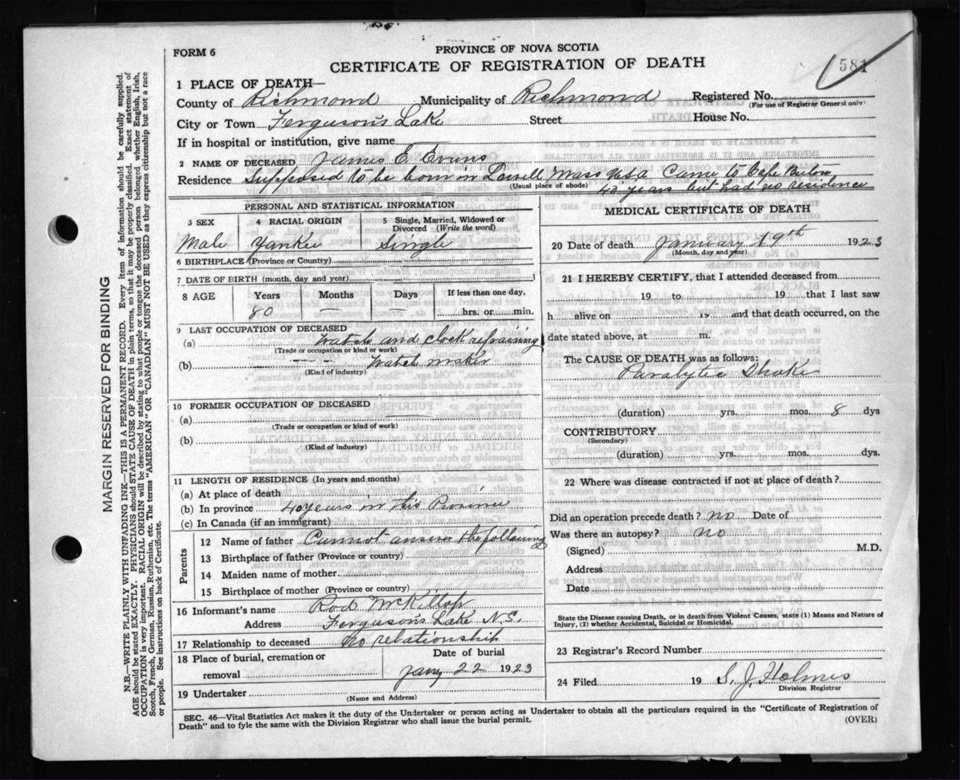 FORM 6
PROVINCE OF NOVA SCOTIA
CERTIFICATE OF REGISTRATION OF DEATH
581
1 PLACE OF DEATH—
County of Richmond Municipality of Richmond Registered No.
(For use of Registrar General only)
City or Town Ferguson's Lake Street House No.
If in hospital or institution, give name
2 NAME OF DECEASED James E. Evans
Residence Supposed to be born in Lowell Mass USA Came to Cape Breton
(Usual place of abode) 43 years but had no residence
PERSONAL AND STATISTICAL INFORMATION
3 SEX 4 RACIAL ORIGIN 5 Single, Married, Widowed or Divorced (Write the word)
Male Yankee Single
6 BIRTHPLACE (Province or Country)
7 DATE OF BIRTH (month, day and year)
8 AGE Years Months Days If less than one day,
80 — — hrs. or min.
9 LAST OCCUPATION OF DECEASED
(a) Watch and clock repairing
(Trade or occupation or kind of work)
(b) Watch maker
(Kind of industry)
10 FORMER OCCUPATION OF DECEASED
(a)
(Trade or occupation or kind of work)
(b)
(Kind of industry)
11 LENGTH OF RESIDENCE (In years and months)
(a) At place of death
(b) In province 40 years in this Province
(c) In Canada (if an immigrant)
Parents
12 Name of father Cannot answer the following
13 Birthplace of father (Province or country)
14 Maiden name of mother
15 Birthplace of mother (Province or country)
16 Informant's name Rod McKillop
Address Ferguson's Lake N.S.
17 Relationship to deceased No relationship
18 Place of burial, cremation or removal Date of burial
Jany 22 1923
19 Undertaker
(Name and Address)
MEDICAL CERTIFICATE OF DEATH
20 Date of death January 19th 1923
(Month, day and year)
21 I HEREBY CERTIFY, that I attended deceased from
19 to 19 that I last saw
h alive on 19 and that death occurred, on the
date stated above, at m.
The CAUSE OF DEATH was as follows:
Paralytic Stroke
(duration) yrs. mos. 8 dys
CONTRIBUTORY
(Secondary)
(duration) yrs. mos. dys.
22 Where was disease contracted if not at place of death?
Did an operation precede death? no Date of
Was there an autopsy? no
(Signed) M.D.
Address
Date
State the Disease causing Death, or in death from Violent Causes, state (1) Means and Nature of Injury, (2) whether Accidental, Suicidal or Homicidal.
23 Registrar's Record Number
24 Filed 19 S. J. Holmes
Division Registrar
SEC. 46—Vital Statistics Act makes it the duty of the Undertaker or person acting as Undertaker to obtain all the particulars required in the "Certificate of Registration of Death" and to fyle the same with the Division Registrar who shall issue the burial permit.
(OVER)
MARGIN RESERVED FOR BINDING
N.B.—WRITE PLAINLY WITH UNFADING INK—THIS IS A PERMANENT RECORD. Every item of information should be carefully supplied.
AGE should be stated EXACTLY. PHYSICIANS should STATE CAUSE OF DEATH in plain terms, so that it may be properly classified. Exact statement of
OCCUPATION is very important. RACIAL ORIGIN will be described by stating to what people or tongue the deceased person belonged, whether English, Irish,
Scotch, French, German, Russian, Ruthenian, etc. The terms "AMERICAN" OR "CANADIAN" MUST NOT BE USED as they express citizenship but not a race
or people. See instructions on back of Certificate.